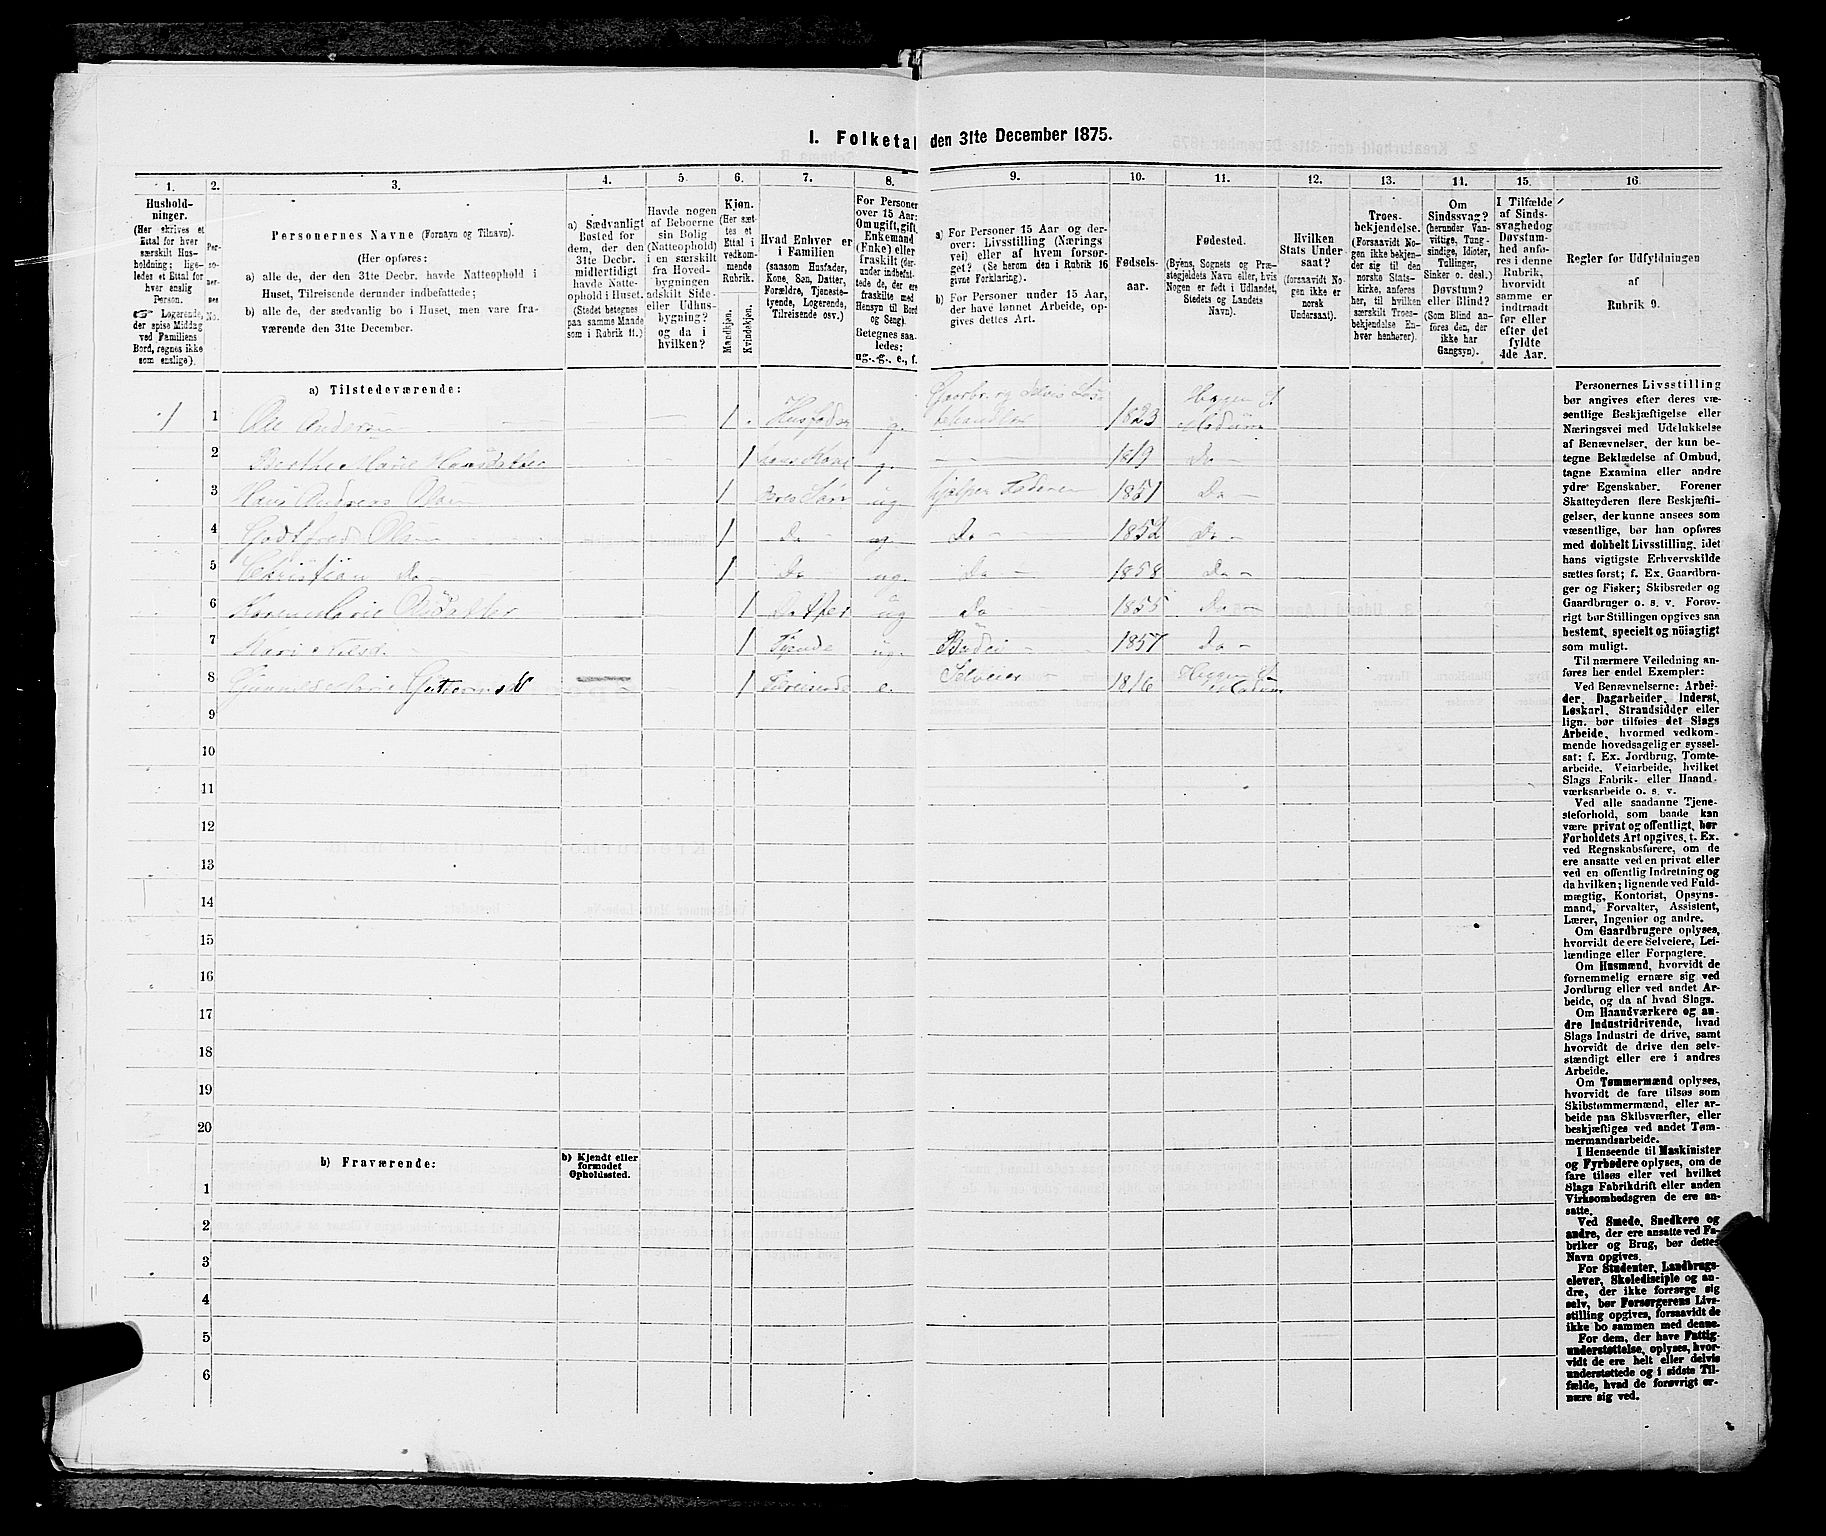 1. Folketal den 31te December 1875.
1. 2. 3. 4. 5. 6. 7. 8. 9. 10. 11. 12. 13. 14. 15. 16.
Hushold-
ninger.
(Her skrives et
Ettal for hver
særskilt Hus-
holdning; lige-
ledes et Ettal for
hver enslig
Person.
Logerende,
der spise Middag
ved Familiens
Bord, regnes ikke
som enslige).
Per-
so-
ner-
nes
No.
Personernes Navne (Fornavn og Tilnavn).
(Her opføres:
a) alle de, der den 31te Decbr. havde Natteophold i
Huset, Tilreisende derunder indbefattede;
b) alle de, der sædvanlig bo i Huset, men vare fra-
værende den 31te December.
a) Sædvanligt
Bosted for
dem, der den
31te Decbr.
midlertidigt
havde Natte-
ophold i Huset.
(Stedet betegnes
paa samme Maade
som i Rubrik 11.)
Havde nogen
af Beboerne
sin Bolig
(Natteophold)
i en særskilt
fra Hoved-
bygningen
adskilt Side-
eller Udhus-
bygning?
og da i
hvilken?
Kjøn.
(Her sæt-
tes et
Ettal i
vedkom-
mende
Rubrik.
Mandkjøn.
Kvindekjøn.
Hvad Enhver er
i Familien
(saasom Husfader,
Kone, Søn, Datter,
Forældre, Tjeneste-
tyende, Logerende,
Tilreisende osv.)
For Personer
over 15 Aar:
Om ugift, gift,
Enkemand
(Enke) eller
fraskilt (der-
under indbefat-
tede de, der ere
fraskilte med
Hensyn til Bord
og Seng).
Betegnes saa-
ledes:
ug., g., e., f.
a) For Personer 15 Aar og der-
over: Livsstilling (Nærings-
vei) eller af hvem forsør-
get? (Se herom den i Rubrik 16
givne Forklaring).
b) For Personer under 15 Aar,
der have lønnet Arbeide, op-
gives dettes Art.
Fødsels-
aar.
Fødested.
(Byens, Sognets og Præ-
stegjeldets Navn eller, hvis
Nogen er født i Udlandet,
Stedets og Landets
Navn).
Hvilken
Stats Under
saat?
(forsaavidt No-
gen ikke er
norsk
Undersaat).
Troes-
bekjendelse.
(Forsaavidt No-
gen ikke bekjen-
der sig til den
norske Stats-
kirke, anføres
her, til hvilken
særskilt Troes-
bekjendelse En-
hver henhører).
Om
Sindssvag?
(herunder Van-
vittige, Tung-
sindige, Idioter,
Tullinger,
Sinker o. desl.)
Døvstum?
eller Blind?
(Som Blind an-
føres den, der
ikke har
Gangsyn).
I Tilfælde
af Sinds-
svaghed og
Døvstum-
hed anfø-
res i denne
Rubrik,
hvorvidt
samme er
indtraadt
før eller
efter det
fyldte
4de Aar.
Regler for Udfyldningen
af
Rubrik 9.
a) Tilstedeværende:
1 1 Ole Andersen 1 Husfader g. 1823 Modum
2 Berthe Marie Hansdatter 1 hans Kone g. 1819 Do
3 Hans Andreas Olsen 1 Deres Søn ug hjelper Faderen 1851 Do
4 Godtfred Olsen 1 Do ug Do 1852 Do
5 Christian Do 1 Do ug. Do 1858 Do
6 1 ug Do 1855 Do
7 1 Tjende 1857 Do
8 1 e. Selveier 1816
9
10
11
12
13
14
15
16
17
18
19
20
b) Fraværende:
b) Kjendt eller
formodet
Opholdssted.
1
2
3
4
5
6
Personernes Livsstilling
bør angives efter deres væ-
sentlige Beskjæftigelse eller
Næringsvei med Udelukkelse
af Benævnelser, der kun be-
tegne Beklædelse af Ombud,
tagne Examina eller andre
ydre Egenskaber. Forener
Skatteyderen flere Beskjæfti-
gelser, der kunne ansees som
væsentlige, bør han opføres
med dobbelt Livsstilling, idet
hans vigtigste Erhvervskilde
sættes først; f. Ex. Gaardbru-
ger og Fisker; Skibsreder og
Gaardbruger o. s. v. Forøv-
rigt bør Stillingen opgives saa
bestemt, specielt og nøiagtigt
som muligt.
Til nærmere Veiledning an-
føres her endel Exempler:
Ved Benævnelserne: Arbei-
der, Dagarbeider, Inderst,
Løskarl, Strandsidder eller
lign. bør tilføies det Slags
Arbeide, hvormed vedkom-
mende hovedsagelig er syssel-
sat; f. Ex. Jordbrug, Tomte-
arbeide, Veiarbeide, hvilket
Slags Fabrik- eller Haand-
værksarbeide o. s. v.
Ved alle saadanne Tjene-
steforhold, som baade kan
være privat og offentligt, bør
Forholdets Art opgives, t. Ex.
ved Regnskabsførere, om de
ere ansatte ved en privat eller
ved en offentlig Indretning og
da hvilken; lignende ved Fuld-
mægtig, Kontorist, Opsyns-
mand, Forvalter, Assistent,
Lærer, Ingeniør og andre.
Om Gaardbrugere oplyses,
hvorvidt de ere Selveiere, Lei-
lændinge eller Forpagtere.
Om Husmænd, hvorvidt de
fornemmelig ernære sig ved
Jordbrug eller ved andet Ar-
beide, og da af hvad Slags.
Om Haandværkere og an-
dre Industridrivende, hvad
Slags Industri de drive, samt
hvorvidt de drive den selv-
stændigt eller ere i andres
Arbeide.
Om Tømmermænd oplyses,
hvorvidt de fare tilsøs som
Skibstømmermænd, eller ar-
beide paa Skibsværfter, eller
beskjæftiges ved andet Tøm-
mermandsarbeide.
I Henseende til Maskinister
og Fyrbødere oplyses, om de
fare tilsøs eller ved hvilket
Slags Fabrikdrift eller anden
Virksomhedsgren de ere an-
satte.
Ved Smede, Snedkere og
andre, der ere ansatte ved Fa-
briker og Brug, bør dettes
Navn opgives.
For Studenter, Landbrugs-
elever, Skoledisciple og an-
dre, der ikke forsørge sig
selv, bør Forsørgerens Livs-
stilling opgives, forsaavidt de
ikke bo sammen med denne.
For dem, der have Fattig-
understøttelse, oplyses, hvor-
vidt de ere helt eller delvis
understøttede og i sidste Til-
fælde, hvad de forøvrigt er-
nære sig ved.